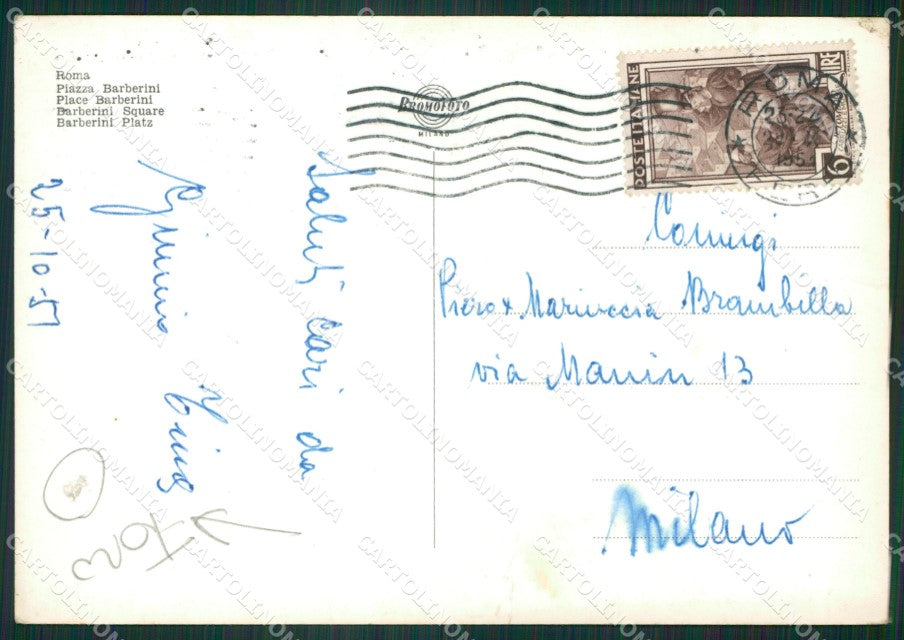 Roma
Piazza Barberini
Place Barberini
Barberini Square
Barberini Platz
PROMOFOTO
MILANO
POSTE ITALIANE
LIRE
6
ROMA
Saluti cari da
Tina
25-10-51
Coniugi
Piero + Mariuccia Brambilla
via Manin 13
Milano
CARTOLINOMANIA